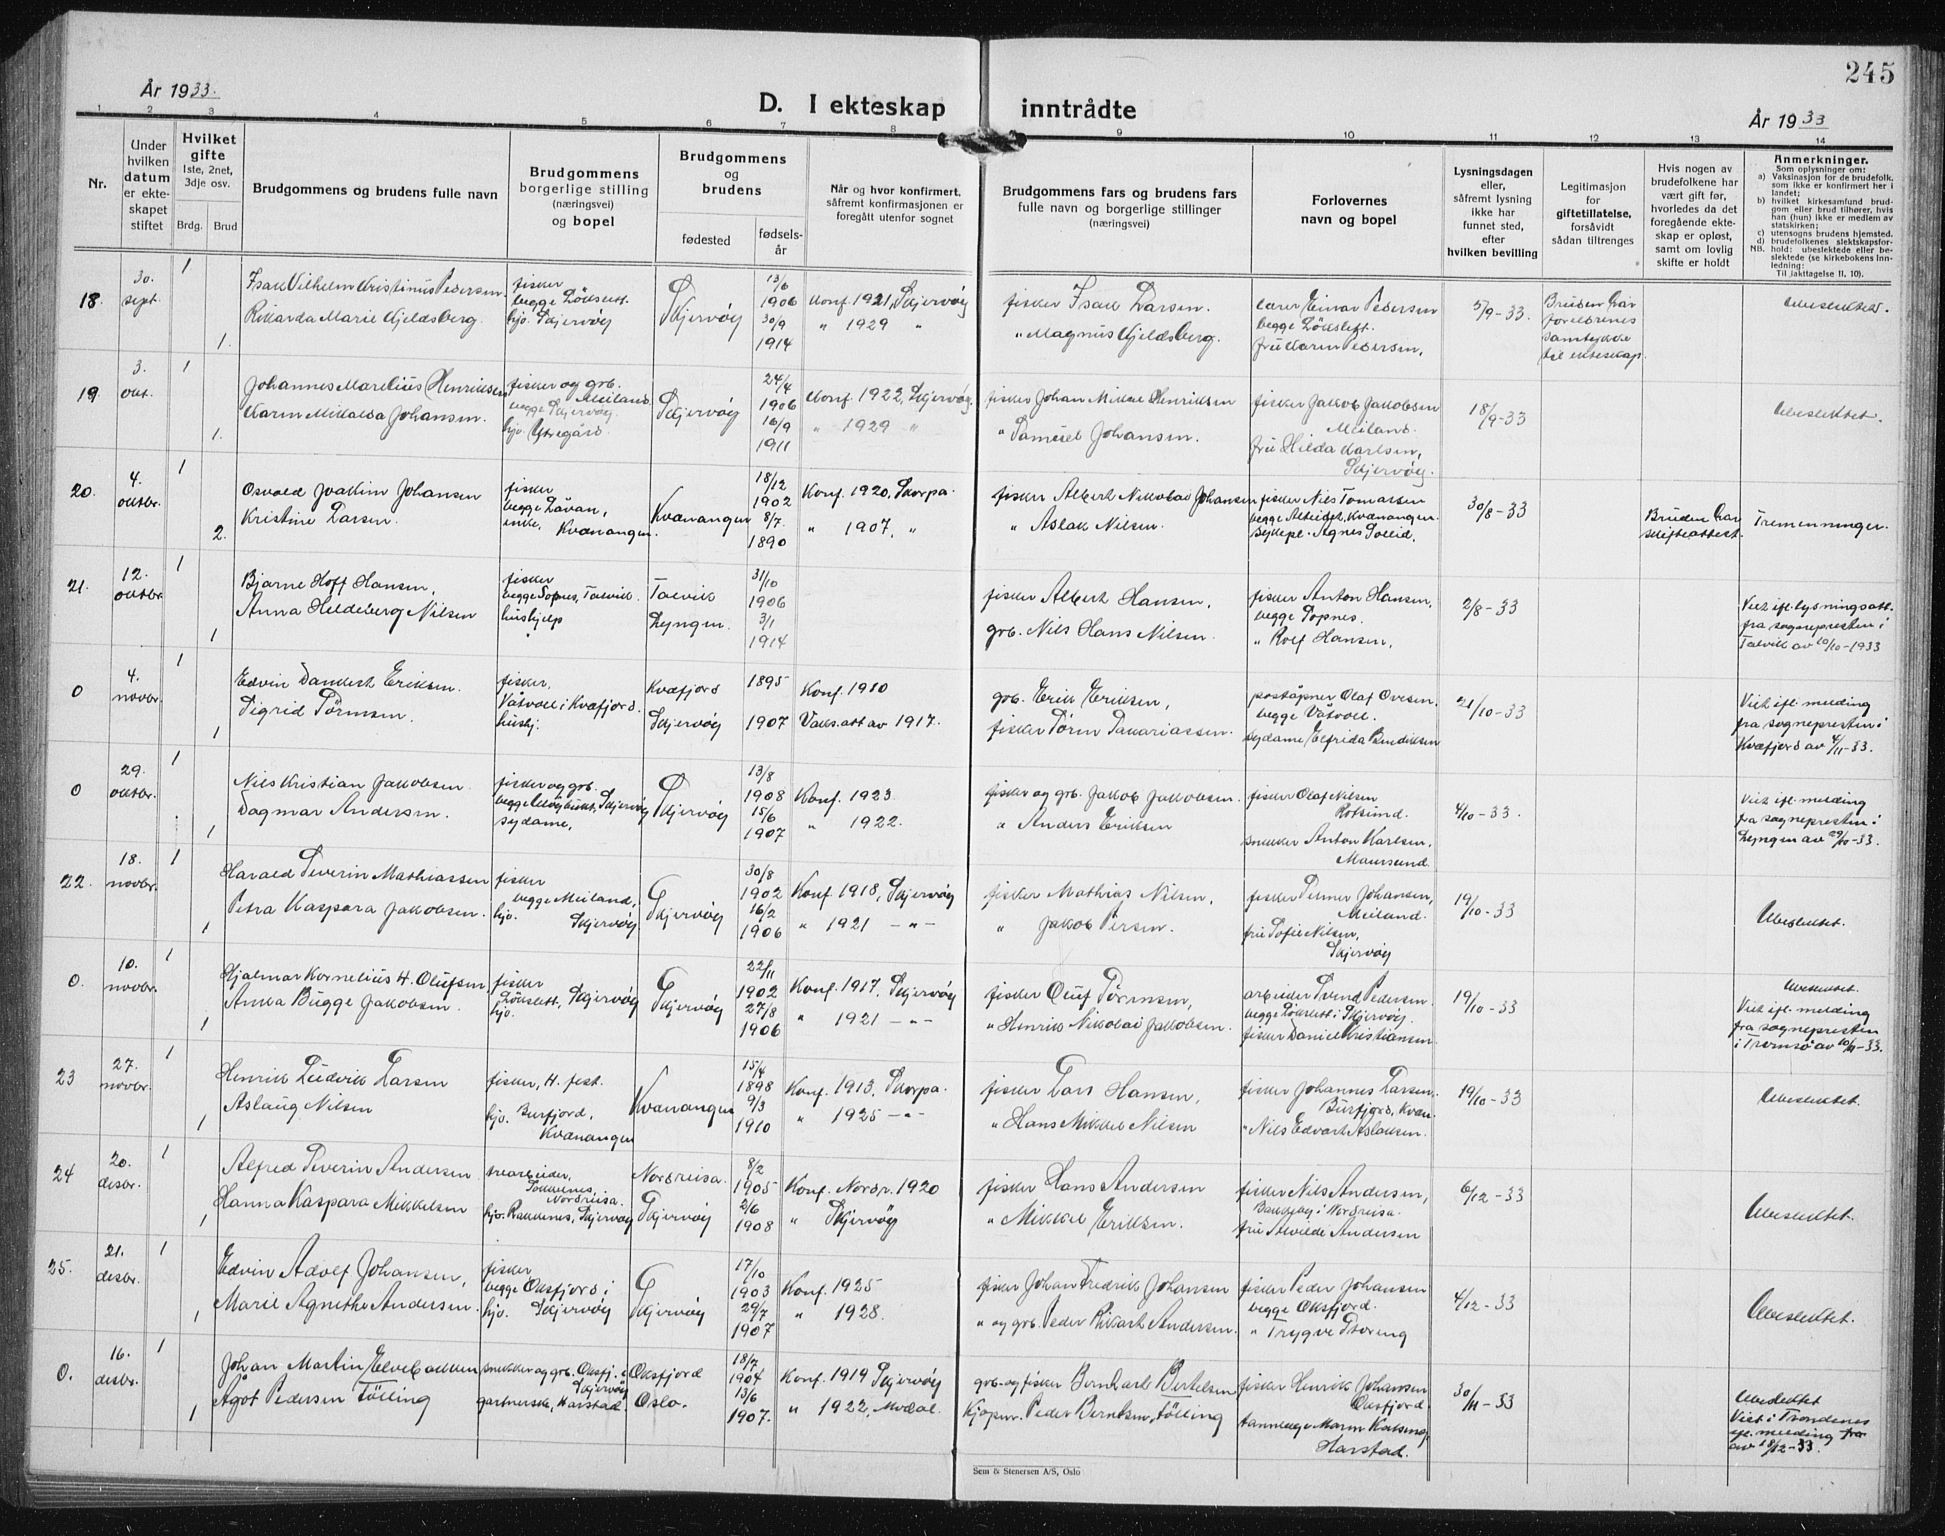 245
År 1933.
D. I ekteskap inntrådte
År 1933
1 2 3 4 5 6 7 8 9 10 11 12 13 14
Nr.
Under
hvilken
datum
er ekte-
skapet
stiftet
Hvilket
gifte
1ste, 2net,
3dje osv.
Brdg. Brud
Brudgommens og brudens fulle navn
Brudgommens
borgerlige stilling
(næringsvei)
og bopel
Brudgommens
og
brudens
fødested
fødsels-
år
Når og hvor konfirmert,
såfremt konfirmasjonen er
foregått utenfor sognet
Brudgommens fars og brudens fars
fulle navn og borgerlige stillinger
(næringsvei)
Forlovernes
navn og bopel
Lysningsdagen
eller,
såfremt lysning
ikke har
funnet sted,
efter
hvilken bevilling
Legitimasjon
for
giftetillatelse,
forsåvidt
sådan tiltrenges
Hvis nogen av
brudefolkene har
vært gift før,
hvorledes da det
foregående ekte-
skap er opløst,
samt om lovlig
skifte er holdt
Anmerkninger.
Som oplysninger om:
a) Vaksinasjon for de brudefolk,
som ikke er konfirmert her i
landet;
b) hvilket kirkesamfund brud-
gom eller brud tilhører, hvis
han (hun) ikke er medlem av
statskirken;
c) utensogns brudens hjemsted.
d) brudefolkenes slektskapsfor-
NB. hold: ubeslektede eller be-
slektede (se kirkebokens Inn-
ledning:
Til Iakttagelse II, 10).
18. 30. sept. 1 1.
Isak Vilhelm Kristinus Pedersen.
Rikkarda Marie Kjeldsberg.
fisker
begge Lökslett.
hjv. Skjervöy
Skjervöy
13/6
1906
30/9
1914
Konf. 1921, Skjervöy
" 1929 "
fisker Isak Larsen.
" Magnus Kjeldsberg.
lærer Einar Pedersen
begge Lökslett.
fru Karen Pedersen,
5/9-33.
Bruden har
foreldrenes
samtykke
til ekteskap.
Ubeslektet.
19. 3. okt. 1 1.
Johannes Marelius Henriksen
Karin Mikalda Johansen.
fisker og grb.
Meiland
begge Skjervöy.
hjv. Ytregård.
Skjervöy
24/4
1906
16/9
1911
Konf. 1922, Skjervöy.
" 1929 "
fisker Johan Mikal Henriksen
" Samuel Johansen.
fisker Jakob Jakobsen
Meiland.
fru Hilda Karlsen,
Skjervöy.
18/9-33
Ubeslektet.
20. 4. oktbr. 1 2.
Osvald Joakim Johansen
Kristine Larsen.
fisker
begge Låvan,
enke. Kvænangen.
Kvænangen
18/12
1902
8/7
1890
Konf. 1920, Skorpa.
" 1907, "
fisker Albert Nikolai Johansen
" Aslak Nilsen.
fisker Nils Tomassen
begge Alteidet, Kvænangen.
sykepl. Agnes Sollid.
30/8-33
Bruden har
skifteattest.
Tremenninger.
21. 12. oktbr. 1 1
Bjarne Hoff Hansen,
Anna Heldeberg Nilsen
fisker
begge Sopnes, Talvik.
hushjelp
Talvik
Lyngen.
31/10
1906
3/1
1914
fisker Albert Hansen,
grb. Nils Hans Nilsen.
fisker Anton Hansen,
begge Sopnes.
" Rolf Hansen,
2/8-33
Viet ifl. lysningsatt.
fra sognepresten i
Talvik av 10/10-1933
0 4. novbr. 1 1
Edvin Dankert Eriksen.
Sigrid Törmsen.
fisker,
Våtvoll i Kvæfjord.
hushj.
Kvæfjord
Skjervöy
1895
1907
Konf. 1910
Vaks. att av 1917.
grb. Erik Eriksen,
fisker Törm Sakariassen.
poståpner Olaf Ovesen,
begge Våtvoll.
sydame Elfrida Bendiksen
21/10-33
Viet ifl. melding
fra sognepresten i
Kvæfjord av 4/11-33.
0 29. oktbr. 1 1
Nils Kristian Jakobsen.
Dagmar Andersen.
fisker og grb.
sydame,
Skjervöy
13/8
1908
15/6
1907
Konf. 1923.
" 1922.
fisker og grb. Jakob Jakobsen.
" Anders Eriksen
fisker Olaf Nilsen
Rotsund.
snekker Anton Karlsen,
Maursund.
4/10-33.
Viet ifl. melding
fra sognepresten i
Lyngen av 29/10-33.
22. 18. novbr. 1 1
Harald Severin Mathiassen
Petra Kaspara Jakobsen.
fisker
begge Meiland,
hjv. Skjervöy.
Skjervöy
30/8
1902
16/2
1906
Konf. 1918, Skjervöy
" 1921 -"-
fisker Mathias Nilsen,
" Jakob Persen.
fisker Peimer Johansen,
Meiland.
fru Sofie Nilsen,
Skjervöy
19/10-33
Ubeslektet.
0. 10. novbr. 1 1
Hjalmar Kornelius H. Olufsen.
Anna Bugge Jakobsen.
fisker
Lökslett, Skjervöy
hjv.
Skjervöy
22/11
1902
27/8
1906
Konf. 1917, Skjervöy
" 1921 -"-
fisker Oluf Törmsen,
" Henrik Nikolai Jakobsen.
arbeider Svend Pedersen.
begge Lökslett i Skjervöy.
fisker Daniel Kristiansen
19/10-33
Ubeslektet.
Viet ifl. melding
fra sognepresten
i Tromsö av 10/11-33.
23 27. novbr. 1 1
Henrik Ludvik Larsen
Aslaug Nilsen
fisker, H. fest.
hjv. Burfjord,
Kvænangen
Kvænangen
15/4
1898
9/3
1910
Konf. 1913, Skorpa.
" 1925 -"-
fisker Lars Hansen,
" Hans Mikkel Nilsen
fisker Johannes Larsen
Burfjord, Kvæn.
" Nils Edvart Aslaksen.
19/10-33
Ubeslektet.
24 20. desbr. 1 1
Alfred Severin Andersen
Hanna Kaspara Mikkelsen
trearbeider,
Sokkenes,
Nordreisa.
hjv. Rakkenes, Skjervöy
Nordreisa.
Skjervöy
8/2
1905
2/6
1908
Konf. Nordr. 1920
" Skjervöy
fisker Hans Andersen
" Mikkel Eriksen.
fisker Nils Andersen,
Bakkeby i Nordreisa.
fru Alvilde Andersen
6/12-33
Ubeslektet.
25. 21. desbr. 1 1
Edvin Adolf Johansen,
Marie Agnethe Andersen.
fisker
begge Oksfjord i
hjv. Skjervöy
Skjervöy
17/10
1903
29/7
1907
Konf. 1925
" 1928.
fisker Johan Fredrik Johansen
" og grb. Peder Rikart Andersen.
fisker Peder Johansen
begge Oksfjord.
" Trygve Storeng
4/12-33
Ubeslektet.
0. 16. desbr. 1 1
Johan Martin Elvebakken
Ågot Pedersen Tölling
snekker og grb. Oksfj. i
Skjervöy
gartnerske, Harstad.
Oksfjord
Oslo.
18/7
1904
13/6
1907.
Konf. 1919 Skjervöy
" 1922,
grb. og fisker Bernhart Bertelsen
Kjøpm. Peder Berntsen Tölling
fisker Henrik Johansen
Oksfjord.
tannlege
Harstad.
30/11-33
Ubeslektet
Viet i Trondenes
ifl. melding fra
av 18/12-33.
Sem & Stenersen A/S, Oslo